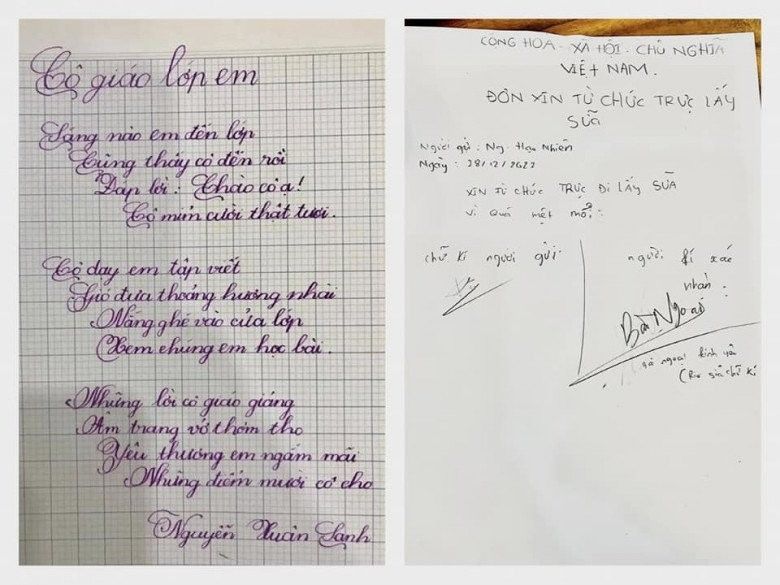 Cô giáo lớp em
Sáng nào em đến lớp
Cũng thấy cô đến rồi
Đáp lời: Chào cô ạ!
Cô mỉm cười thật tươi.
Cô dạy em tập viết
Gió đưa thoảng hương nhài
Nắng ghé vào cửa lớp
Xem chúng em học bài.
Những lời cô giáo giảng
Ấm trang vở thơm tho
Yêu thương em ngắm mãi
Những điểm mười cô cho
Nguyễn Xuân Sanh
CỘNG HÒA - XÃ HỘI - CHỦ NGHĨA
VIỆT NAM.
ĐƠN XIN TỪ CHỨC TRỰC LẤY
SỮA
Người gửi: Ng. Hạo Nhiên
Ngày: 28/12/2022
XIN TỪ CHỨC TRỰC ĐI LẤY SỮA
Vì quá mệt mỏi.
chữ kí người gửi:
người kí xác
nhận:
Bà Ngoại
bà ngoại kính yêu
chữ kí